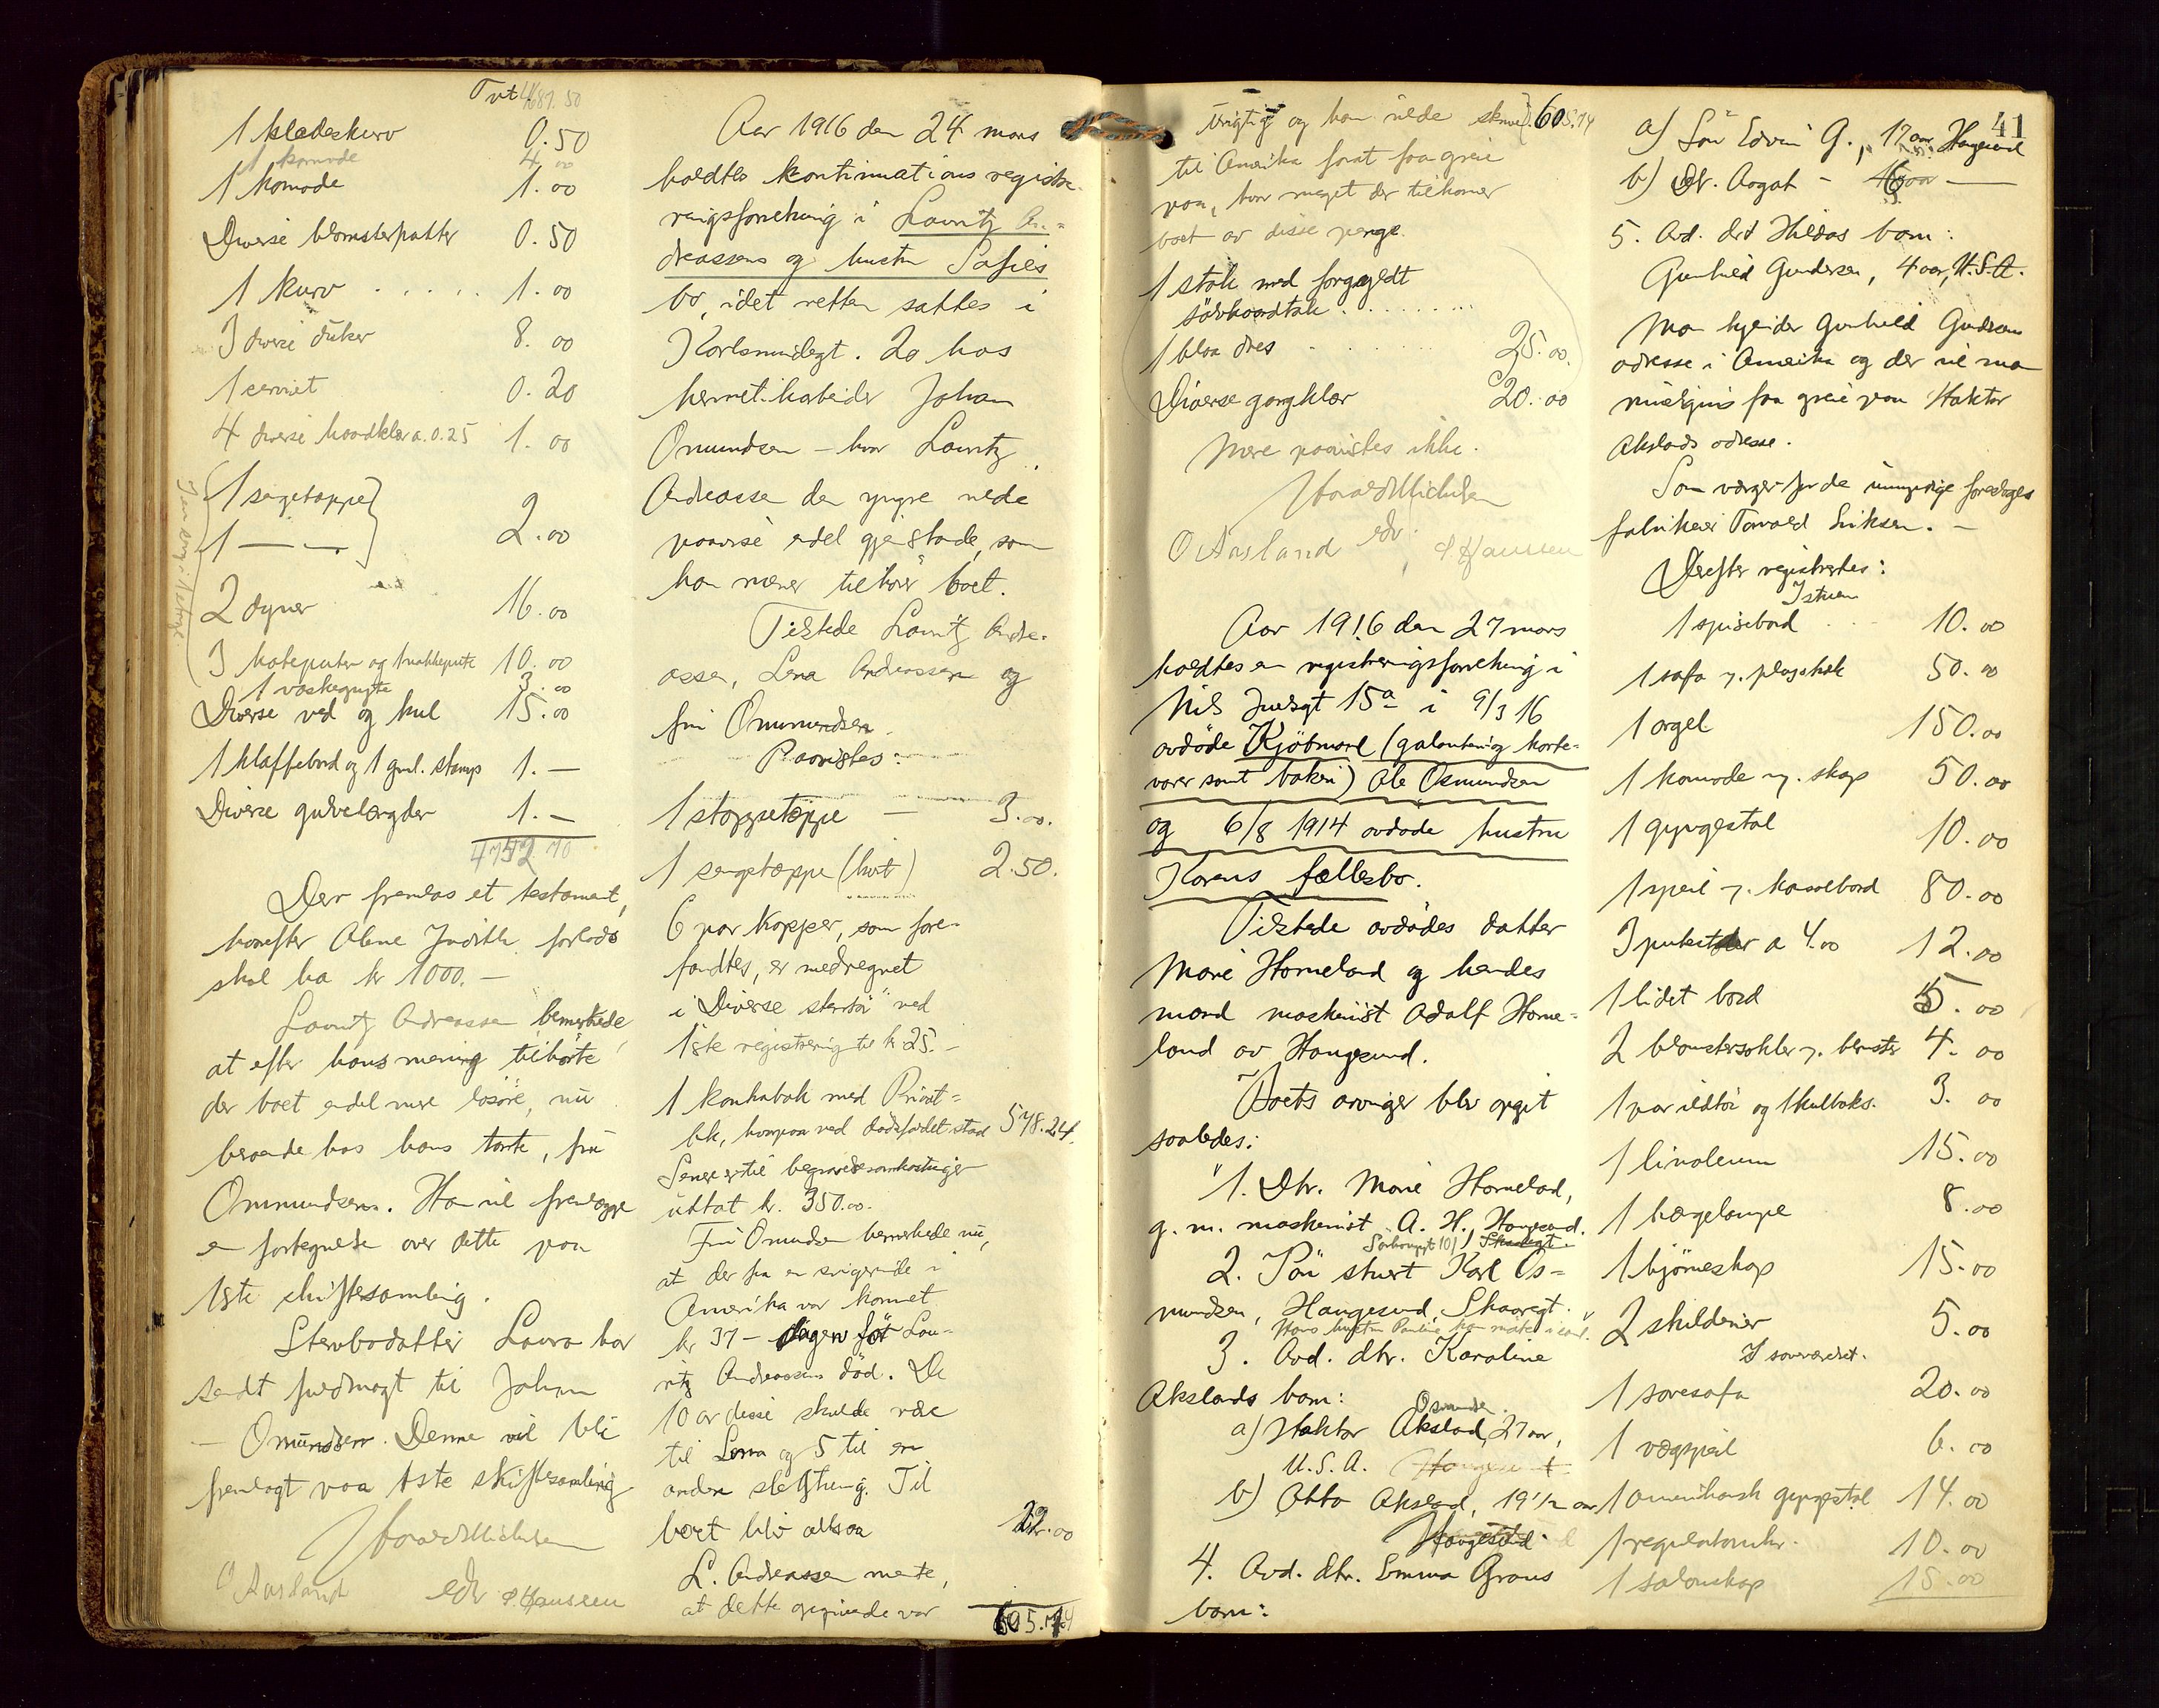 Tvt. 4687.50
1 klædeskurv 0.50
1 komode 4.00
1 komode 1.00
Diverse blomsterpotter 0.50
1 kurv . . . . . 1.00
3 diverse duker 8.00
1 serviet 0.20
4 diverse haandklær a 0.25 1.00
1 sengetæppe
1 — — 2.00
2 dyner 16.00
3 hodeputer og 1 nakkepute 10.00
1 vaskegryte 3.00
Diverse ved og kul 15.00
1 klaffebord og 1 gml. stamp 1.—
Diverse gulvlængder 1.—
4752.70
Der fremlas et testament,
hvorefter Alene Judith forlods
skal ha kr 1000.—
Lauritz Andreassen bemerkede,
at efter hans mening tilhörte
der boet endel mere lösöre, nu
beroende hos hans tante, fru
Ommundsen. Han vil fremlægge
en fortegnelse over dette paa
1ste skiftesamling.
Stervbodatter Laura har
sendt fuldmagt til Johan
Omundsen. Denne vil bli
fremlagt paa 1ste skiftesamling
O Aasland edr. S Hanssen
Aar 1916 den 24 mars
holdtes kontinuations registre-
ringsforretning i Lauritz An-
dreassens og hustru Sofies
bo, idet retten sattes i
Karlsmindegt. 20 hos
hermetikarbeider Johan
Omundsen — hvor Lauritz
Andreassen den yngre vilde
paavise endel gjenstande, som
han mener tilhører boet.
Tilstede Lauritz Andre-
assen, Lena Andreassen og
fru Ommundsen.
Paavistes:
1 stoppetæppe — 3.00.
1 sengetæppe (hvit) 2.50.
6 par kopper, som fore-
fandtes, er medregnet
i "Diverse stentöi" ved
1ste registrering til kr 25.—
1 kontrabok med Privat-
bk, hvorpaa ved dødsfaldet stod 578.24.
Senere er til begravelsesomkostninger
uttat kr. 350.00.
Fru Omundsen bemerkede nu,
at der fra en svigerinde i
Amerika var kommet
kr 37— dagen før Lau-
ritz Andreassens död. De
10 av disse skulde være
til Lena og 5 til en
anden slegtning. Til
boet blir altsaa 22.00
L. Andreassen mente,
at dette opgivende var
605.74
urigtig og han vilde skrive 605.74
til Amerika forat faa greie
paa, hvor meget der tilkommer
boet av disse penge.
1 stok med forgyldt
sölvhaandtak . . . . . . . .
1 blaa dres . . . . . 25.00.
Diverse gangklær 20.00
Mere paavistes ikke.
O Aasland edr. S Hanssen
Aar 1916 den 27 mars
holdtes en registreringsforretning i
Nils Juelsgt 15a i 9/3 16
avdöde Kjöbmand (galanteri og korte-
varer samt bakeri) Ole Osmundsen
og 6/8 1914 avdøde hustru
Karens fællesbo.
Tilstede avdödes datter
Marie Horneland og hendes
mand maskinist Adolf Horne-
land av Haugesund.
Boets arvinger blev opgit
saaledes:
"1. Dtr. Marie Horneland,
g. m. maskinist A. H., Haugesund.
2. Sön stuert Karl Os-
mundsen, Haugesund, Skaaregt.
Hans hustru Pauline kan möte i
3. Avd. dtr. Karoline
Akslands barn:
Osmundsen
a) Haktor Aksland, 27 aar,
U.S.A.
b) Otto Aksland, 19 1/2 aar
Haugesund.
4. Avd. dtr. Emma Grans
barn:
41
a) Sön Edvin G., 17 aar Haugesund
b) Dt. Aagot — 16 aar —
5. Avd. dtr Hildas barn:
Gunhild Gundersen, 4 aar, U.S.A.
Man kjender Gunhild Gundersens
adresse i Amerika og der vil man
muligens faa greie paa Haktor
Akslands adresse.
Som værge for de umyndige foreslages
fabrikeier Torvald Eriksen. —
Derefter registrertes:
I stuen
1 spisebord . . . 10.00
1 sofa m. plyschtræk 50.00
1 orgel 150.00
1 komode m. skap 50.00
1 gyngestol 10.00
1 speil m. konsolebord 80.00
3 pultstoler a 4.00 12.00
1 lidet bord 5.00
2 blomstersokler m. blomster 4.00
1 par ildtöi og 1 kulboks. 3.00
1 linoleum 15.00
1 hængelampe 8.00
1 hjörneskap 15.00
2 skilderier 5.00
I soveværelset.
1 sovesofa 20.00
1 vægspeil 6.00
1 amerikansk gyngestol 14.00
1 regulatoruhr. 10.00
1 salonskap 15.00